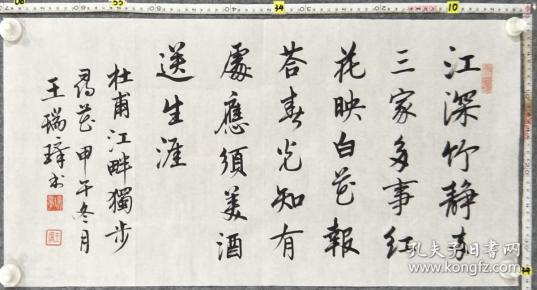 江深竹静两
三家多事红
花映白花报
答春光知有
處應須美酒
送生涯
杜甫江畔獨步
尋花甲午冬月
王瑞璋书
孔夫子旧书网
www.kongfz.com